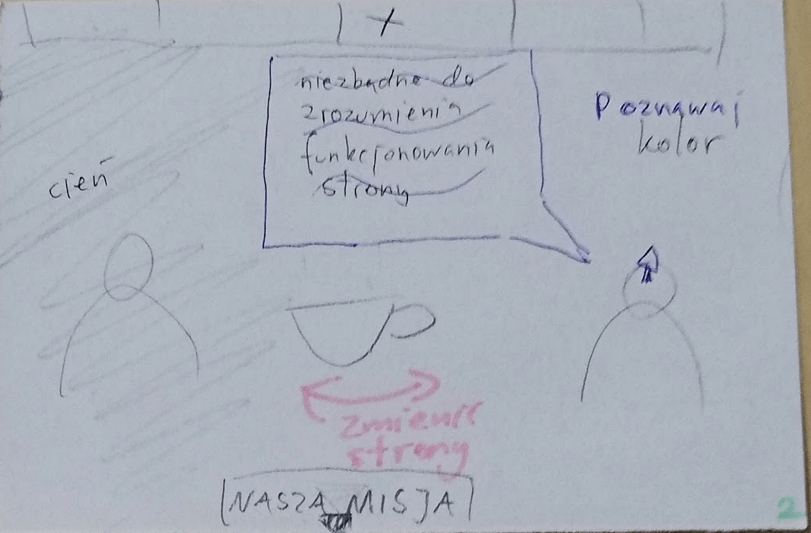 +
niezbędne do
zrozumienia
funkcjonowania
strony
Poznawaj
kolor
cień
zmienić
strony
NASZA MISJA
2